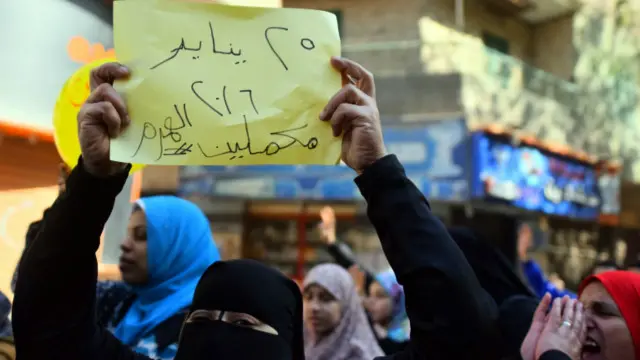 ٢٥ يناير
٢٠١٦ الهرم
#مكملين